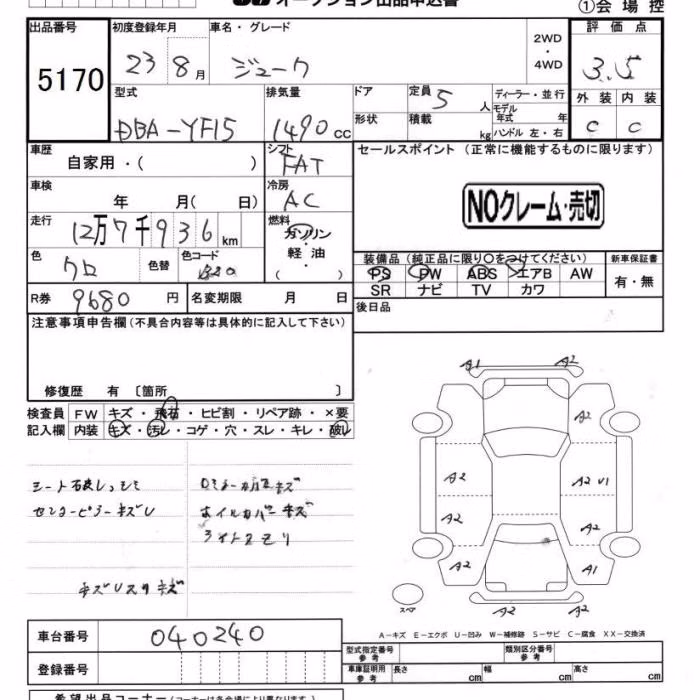 オークション出品申込書
①会場控
出品番号 初度登録年月 車名・グレード 2WD・4WD 評価点
5170 23 8月 ジューク 3.5
型式 排気量 ドア 定員 5人 ディーラー・並行 外装 内装
DBA-YF15 1490cc 形状 積載 kg モデル年式 年 ハンドル 左・右 C C
車歴 シフト セールスポイント (正常に機能するものに限ります)
自家用・( ) FAT
車検 冷房
年 月( 日) AC
NOクレーム・売切
走行 燃料
12万7千936km ガソリン・軽油 ( )
色 色替 色コード 装備品 (純正品に限り○をつけてください) 新車保証書
クロ PS PW ABS エアB AW 有・無
SR ナビ TV カワ
R券 9680円 名変期限 月 日 後日品
注意事項申告欄(不具合内容等は具体的に記入して下さい)
修復歴 有 〔箇所 〕
検査員 FW キズ・飛石・ヒビ割・リペア跡・×要
記入欄 内装 キズ・汚レ・コゲ・穴・スレ・キレ・破レ
A1 A2
A2
A2 A2 U1
A2 A2
A2 A1
スペア A2 A2
ホイルカバーキズ
A-キズ E-エクボ U-凹み W-補修跡 S-サビ C-腐食 XX-交換済
車台番号 040240
型式指定番号 参考 類別区分番号 参考
登録番号
車庫証明用 参考 長さ cm 幅 cm 高さ cm
希望出品コーナー(コーナーは各会場により異なります)